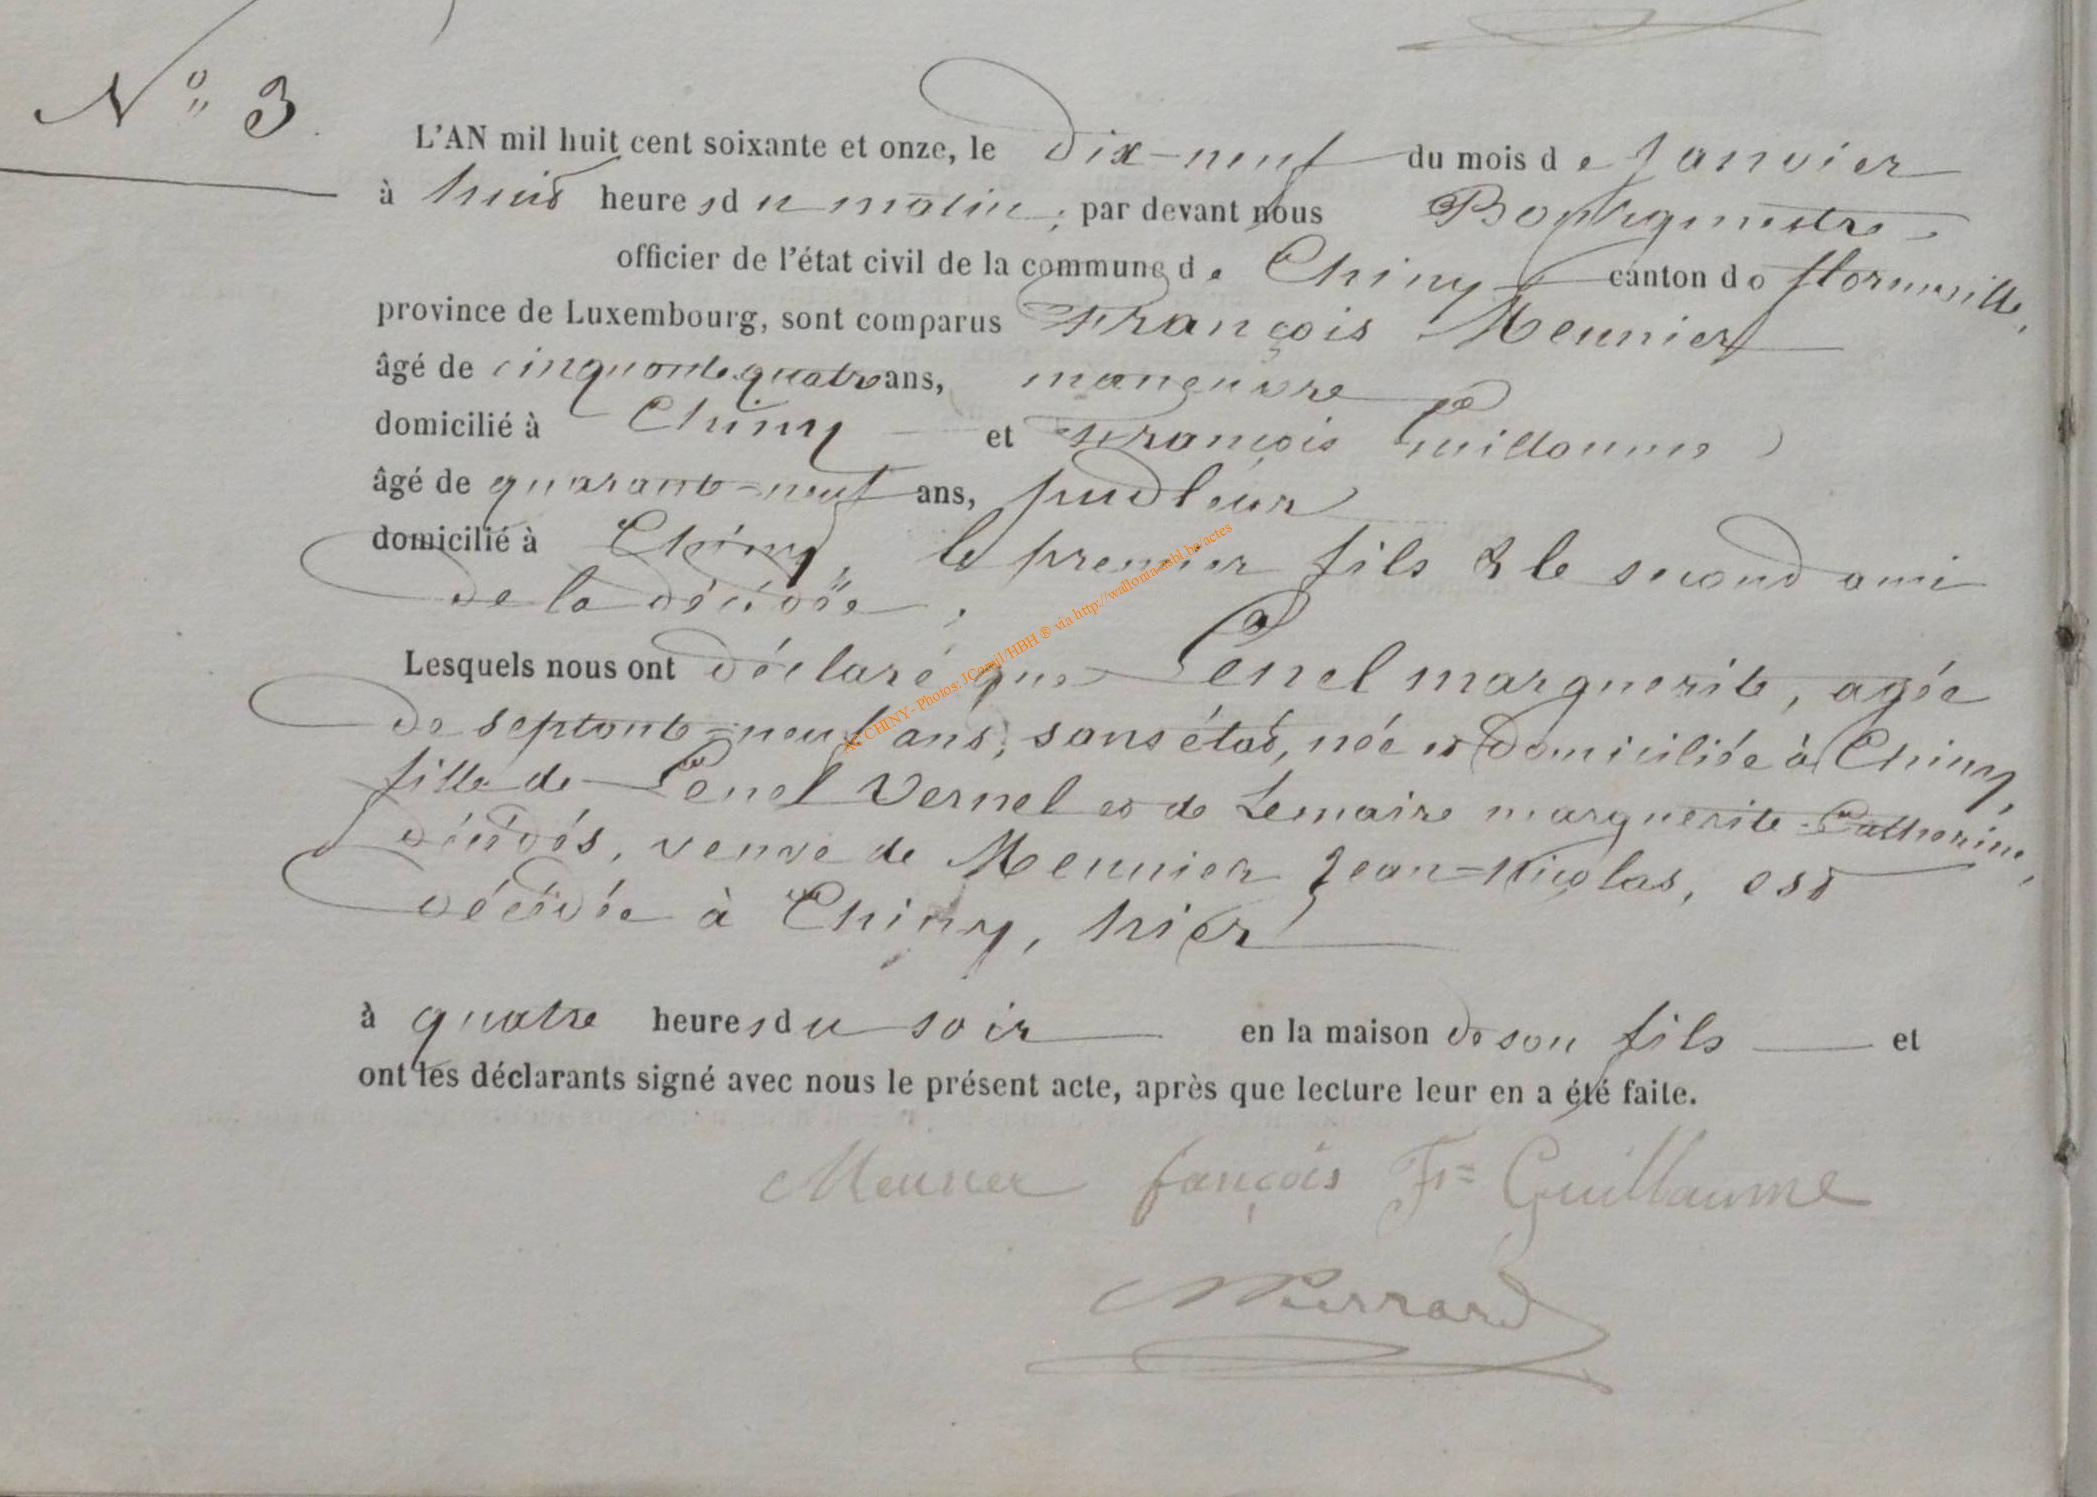 N° 3
L'AN mil huit cent soixante et onze, le dix-neuf du mois de Janvier
à huit heures du matin, par devant nous Bourgmestre
officier de l'état civil de la commune de Chiny canton de florenville,
province de Luxembourg, sont comparus François Meunier
âgé de cinquante quatre ans, manœuvre
domicilié à Chiny et François Guillaume
âgé de quarante-neuf ans, pudleur
domicilié à Chiny, le premier fils & le second ami
de la décédée,
Lesquels nous ont déclaré que Penel marguerite, agée
de septante-neuf ans, sans état, née et domiciliée à Chiny,
fille de Penel Vernel et de Lemaire marguerite Catherine,
décédés, veuve de Meunier Jean-Nicolas, est
décédée à Chiny, hier
à quatre heures du soir en la maison de son fils et
ont les déclarants signé avec nous le présent acte, après que lecture leur en a été faite.
Meunier françois Fs Guillaume
Pierrard
AC CHINY - Photos: JComil/HBH ® via http://wallonia-asbl.be/actes